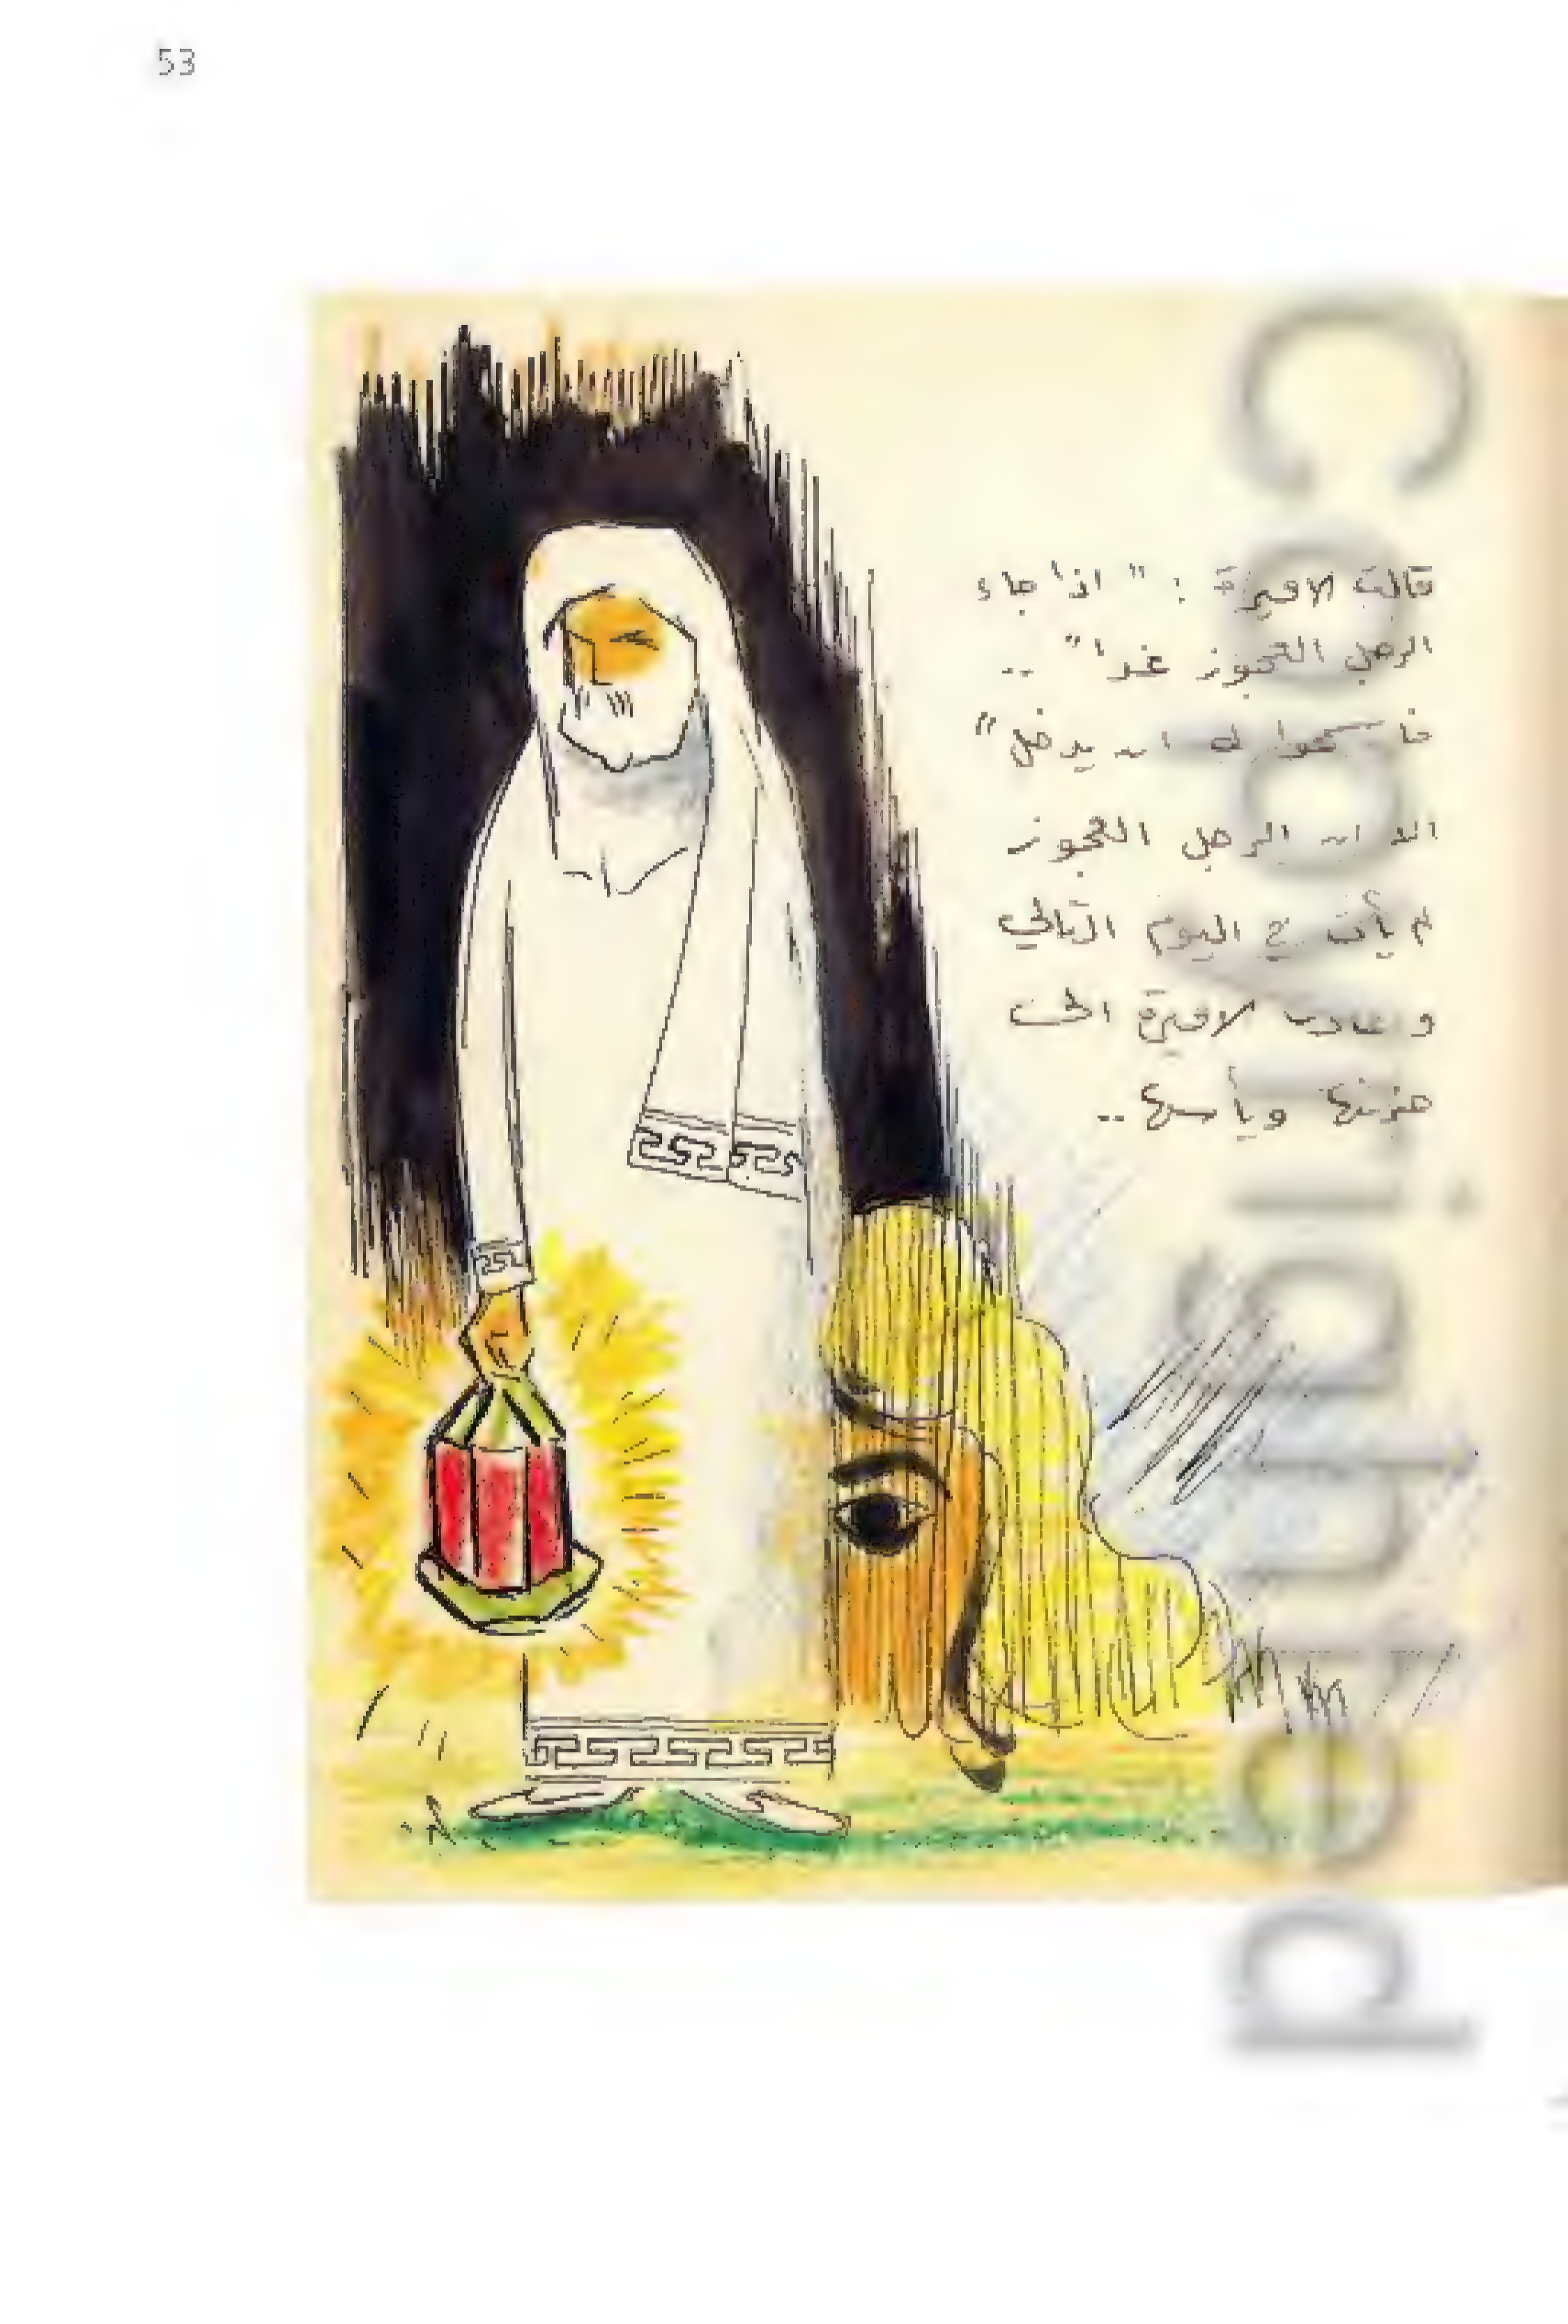 53
قالت الاميرة : " اذا جاء
الرجل العجوز غدا " ..
فاسمحوا له ان يدخل "
الا ان الرجل العجوز
لم يأت في اليوم التالي
وعادت الاميرة الى
حزنها ويأسها ..
Copyrighted